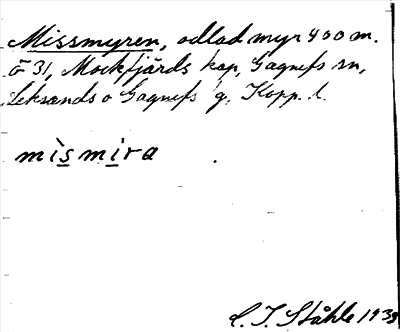 Missmyren, odlad myr 400 m.
ö 31, Mockfjärds kap, Gagnefs sn,
Leksands o Gagnefs tg. Kopp. l.
mìsmira
C. I. Ståhle 1939